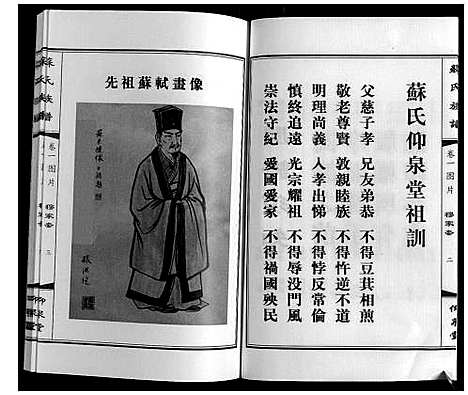 蘇氏族譜
卷一图片
穆家寨
二
仰泉堂
蘇氏仰泉堂祖訓
父慈子孝 兄友弟恭 不得豆萁相煎
敬老尊賢 敦親睦族 不得忤逆不道
明理尚義 入孝出悌 不得悖反常倫
慎終追遠 光宗耀祖 不得辱没門風
崇法守紀 愛國愛家 不得禍國殃民
先祖蘇軾畫像
蘇氏族譜
卷一图片
穆家寨
三
仰泉堂